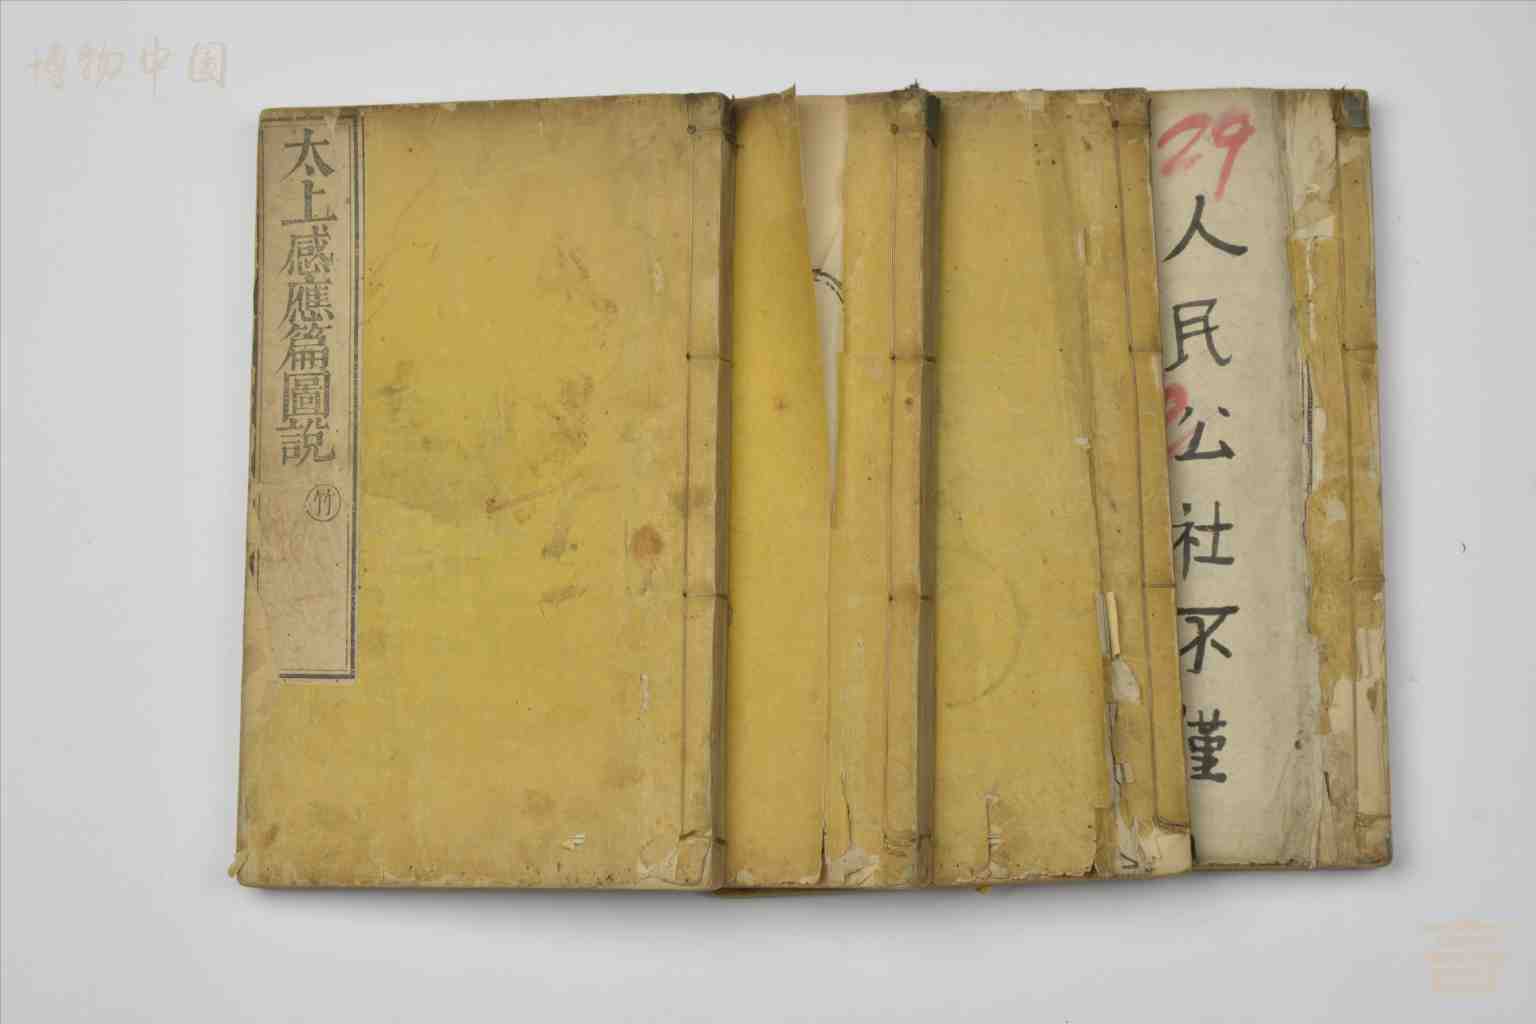 博物中国
太上感應篇圖說
竹
29
人民公社不僅